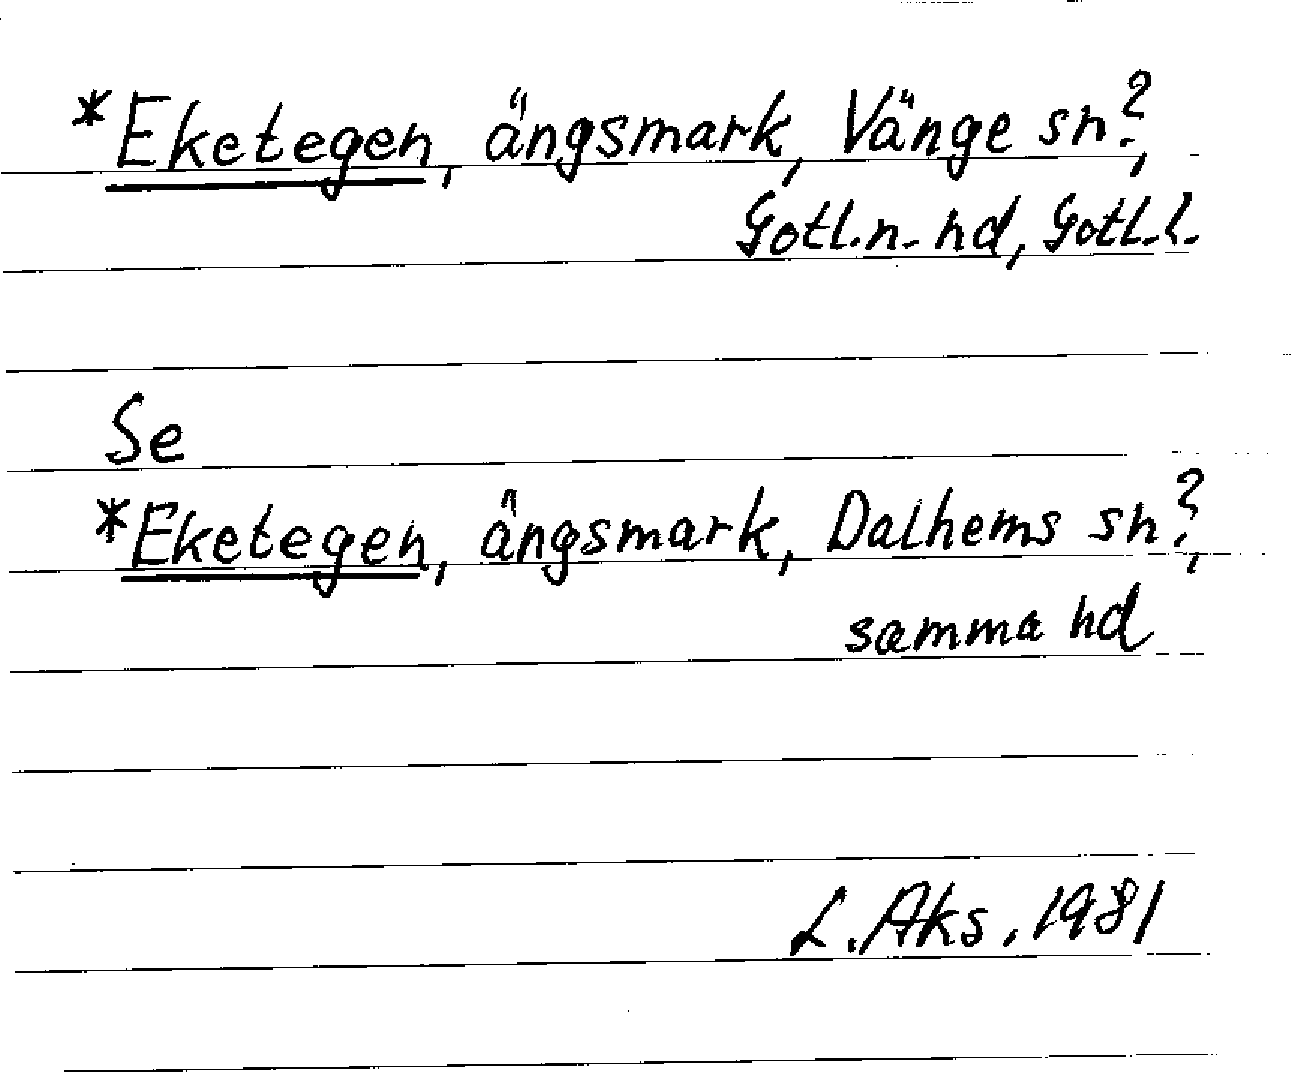 *Eketegen, ängsmark, Vänge sn?,
Gotl.n. hd, Gotl.l.
Se
*Eketegen, ängsmark, Dalhems sn?,
samma hd
L. Aks. 1981